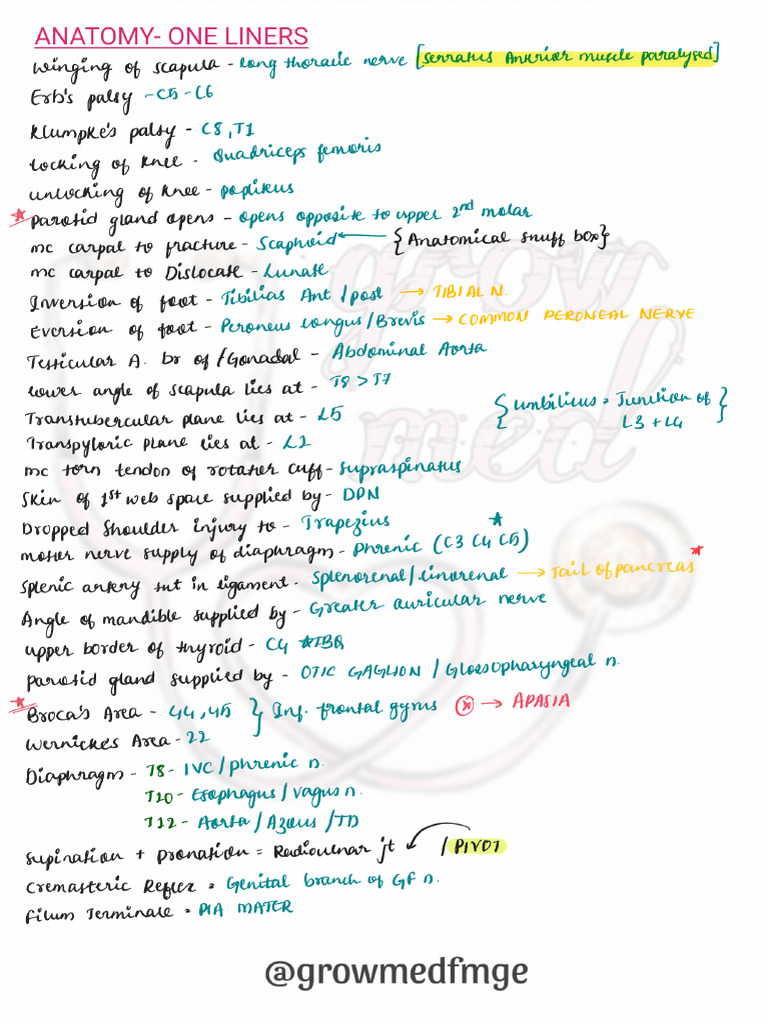 ANATOMY- ONE LINERS
Winging of scapula - long thoracic nerve [Serratus Anterior muscle paralysed]
Erb's palsy - C5 - C6
Klumpke's palsy - C8, T1
Locking of knee - Quadriceps femoris
unlocking of knee - popliteus
* Parotid gland opens - opens opposite to upper 2nd molar
mc carpal to fracture - Scaphoid ← {Anatomical snuff box}
mc carpal to Dislocate - Lunate
Inversion of foot - Tibilias Ant / post → TIBIAL N.
Eversion of foot - Peroneus longus/Brevis → COMMON PERONEAL NERVE
Testicular A. br of / Gonadal - Abdominal Aorta
lower angle of scapula lies at - T8 > T7
Transtubercular plane lies at - L5 {umbilicus = Junction of L3 + L4}
Transpyloric plane lies at - L1
mc torn tendon of rotater cuff - supraspinatus
Skin of 1st web space supplied by - DPN
Dropped Shoulder injury to - Trapezius
motor nerve supply of diaphragm - Phrenic (C3 C4 C5) *
Splenic artery in ligament - Splenorenal/linorenal → Tail of pancreas *
Angle of mandible supplied by - Greater auricular nerve
upper border of thyroid - C4
parotid gland supplied by - OTIC GAGLION / Glossopharyngeal n.
* Broca's Area - 44, 45 } Inf. frontal gyrus → APASIA
Wernicke's Area - 22
Diaphragm - T8 - IVC / phrenic n.
T10 - Esophagus / vagus n.
T12 - Aorta / Azous / TD
Supination + pronation = Radioulnar jt / PIVOT
Cremasteric Reflex = Genital branch of GF n.
Filum Terminale = PIA MATER
grow
med
@growmedfmge